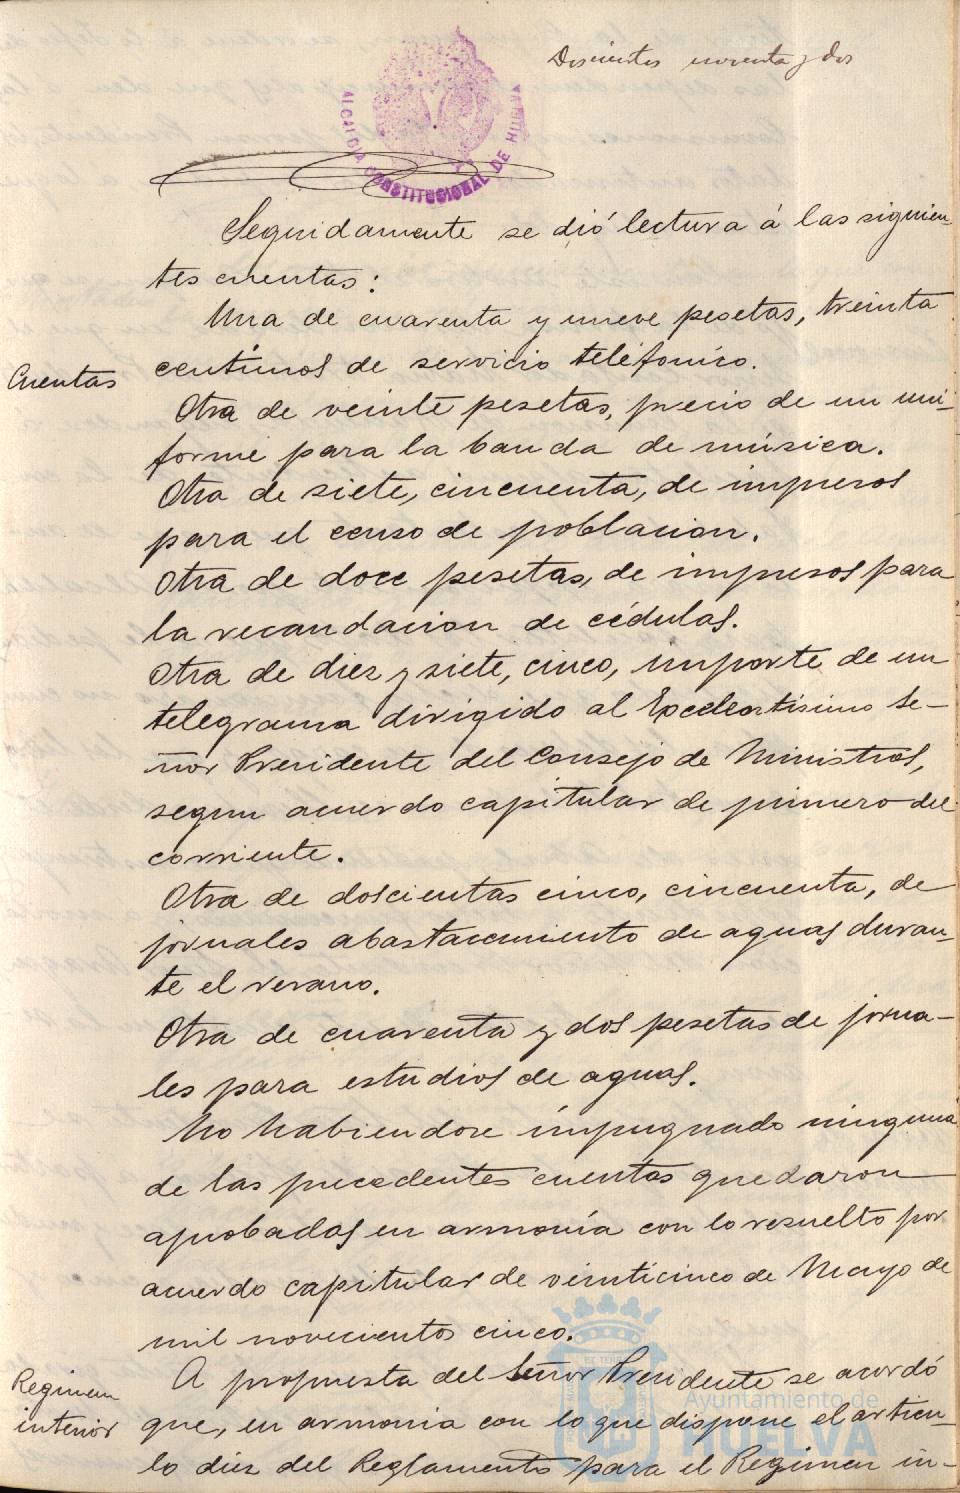 Doscientos noventa y dos
ALCALDIA CONSTITUCIONAL DE HUELVA
Seguidamente se dió lectura á las siguien-
tes cuentas:
Una de cuarenta y nueve pesetas, treinta
Cuentas
centimos de servicio teléfonico.
Otra de veinte pesetas, precio de un uni-
forme para la banda de música.
Otra de siete, cincuenta, de impresos
para el censo de poblacion.
Otra de doce pesetas, de impresos para
la recaudacion de cédulas.
Otra de diez y siete, cinco, importe de un
telegrama dirigido al Excelentisimo Se-
ñor Presidente del Consejo de Ministros,
segun acuerdo capitular de primero del
corriente.
Otra de doscientas cinco, cincuenta, de
jornales abastecimiento de aguas duran-
te el verano.
Otra de cuarenta y dos pesetas de jorna-
les para estudios de aguas.
No habiendose impugnado ninguna
de las precedentes cuentas quedaron
aprobadas en armonía con lo resuelto por
acuerdo capitular de veinticinco de Mayo de
mil novecientos cinco.
Regimen
interior
A propuesta del Señor Presidente se acordó
que, en armonia con lo que dispone el articu-
lo diez del Reglamento para el Regimen in-
Ayuntamiento de
HUELVA